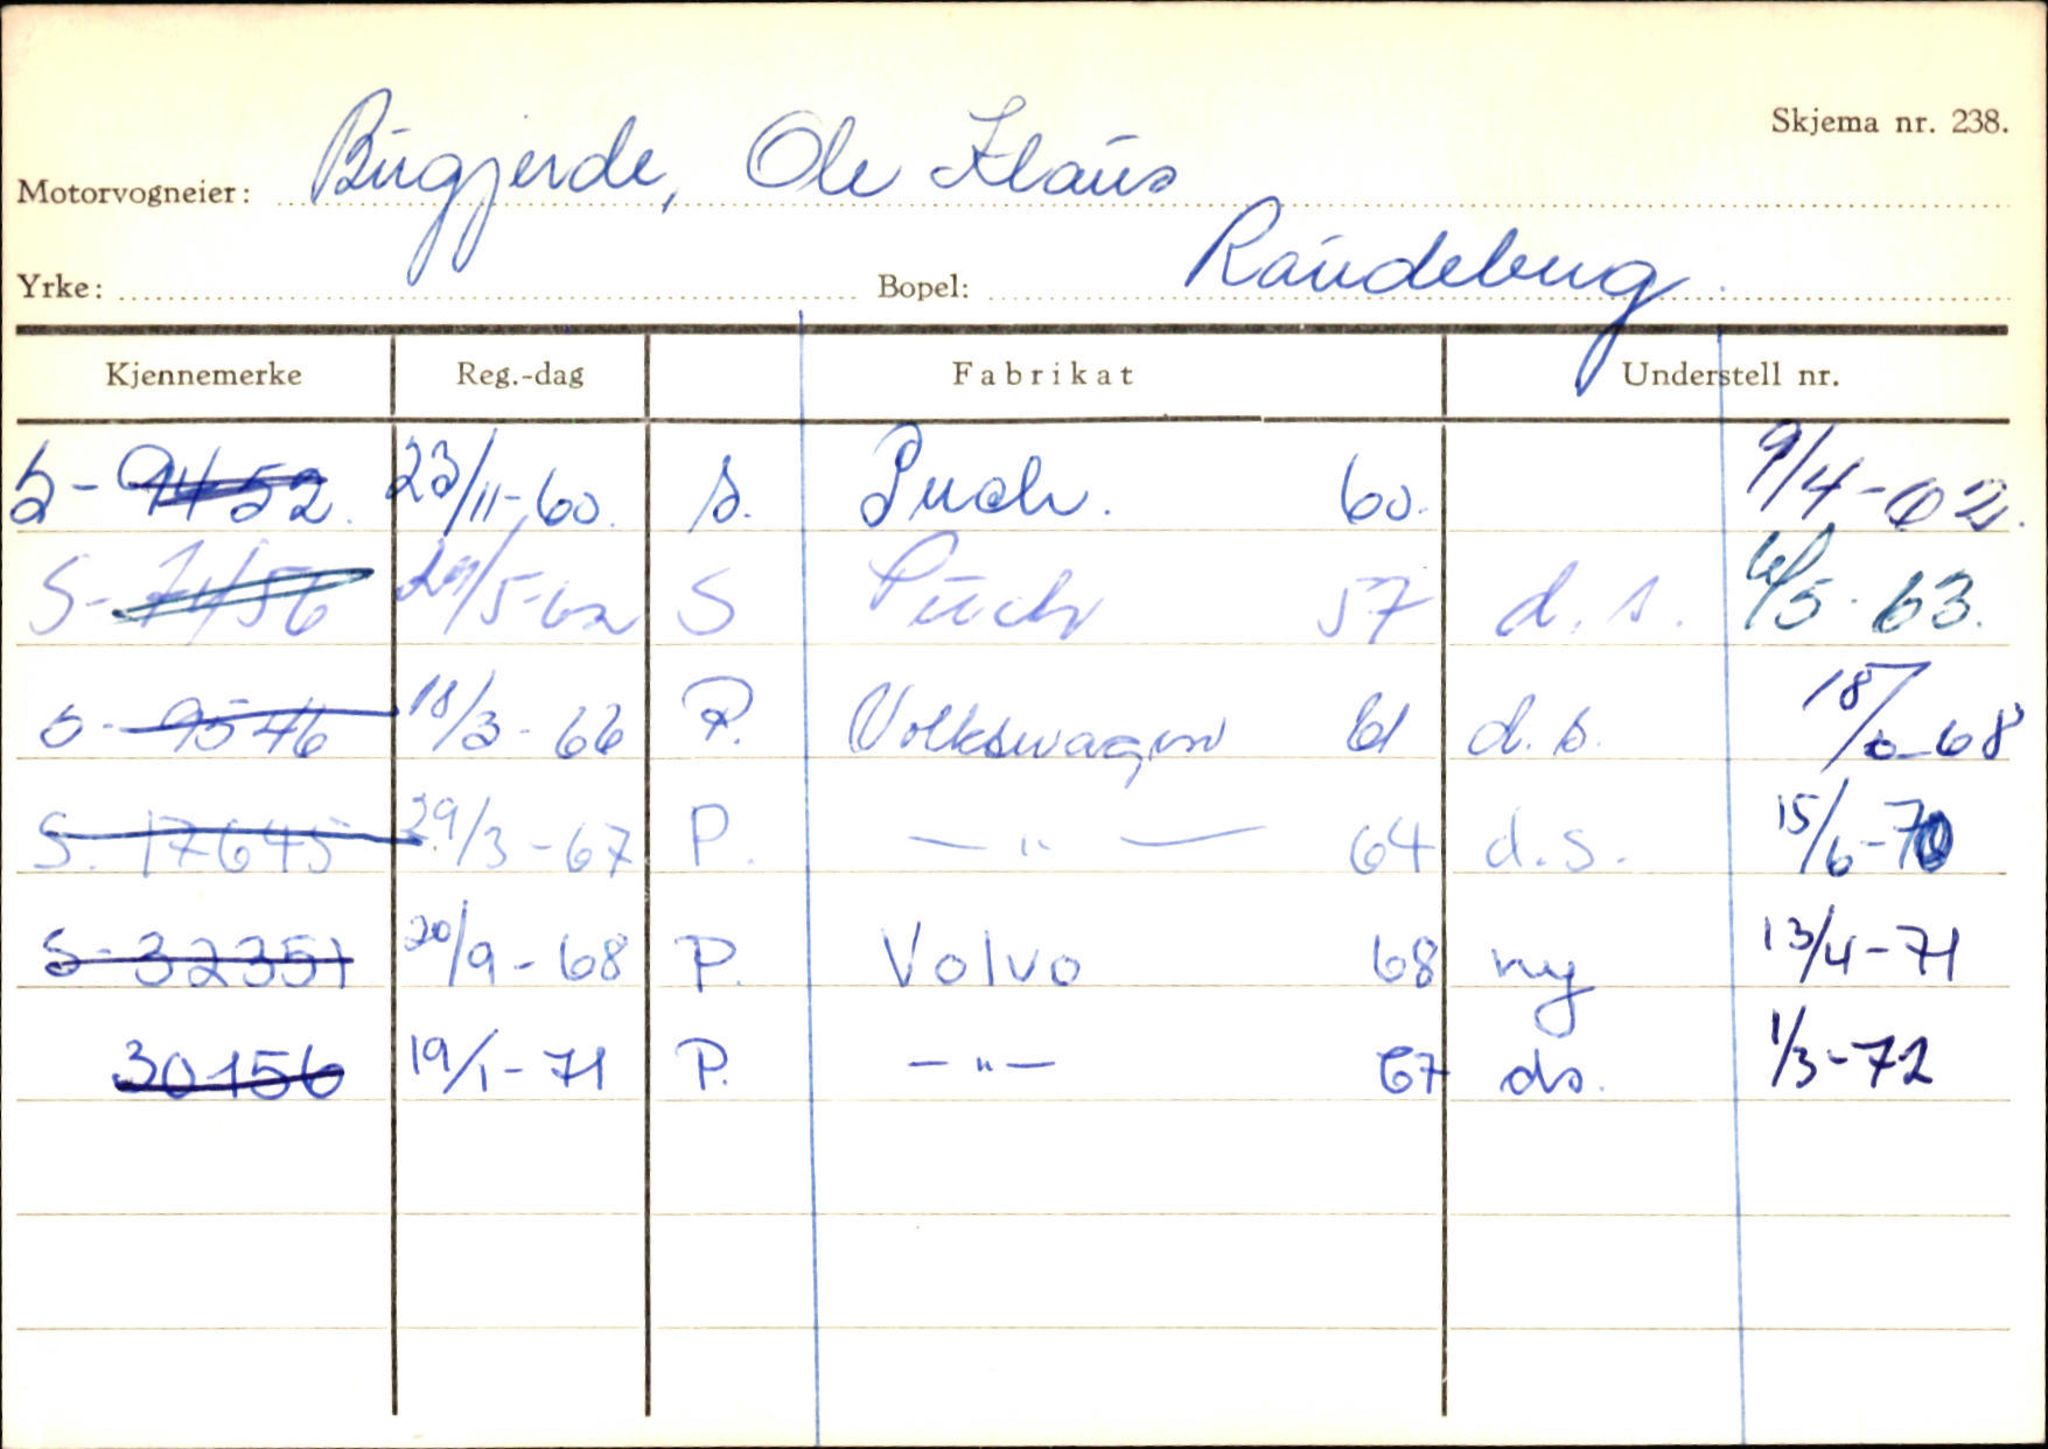 Skjema nr. 238.
Motorvogneier: Bugjerde, Ole Klaus
Yrke: Bopel: Raudeberg
Kjennemerke Reg.-dag Fabrikat Understell nr.
S-9452. 23/11-60. S. Puch. 60. 9/4-62.
S-7456 29/5-62 S Puch 57 d.s. 6/5-63.
S-9546 18/3-66 P. Volkswagen 61 d.s. 18/6-68
S. 17645 29/3-67 P. — " — 64 d.s. 15/6-70
S-32351 20/9-68 P. Volvo 68 ny 13/4-71
30156 19/1-71 P. — " — 67 ds. 1/3-72